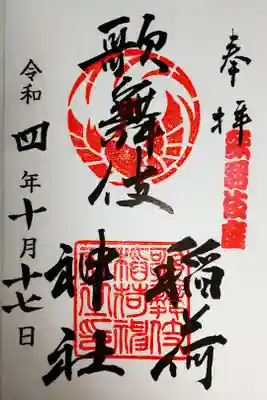 奉拝
歌舞伎座
歌舞伎
稲荷
神社
令和四年十月十七日